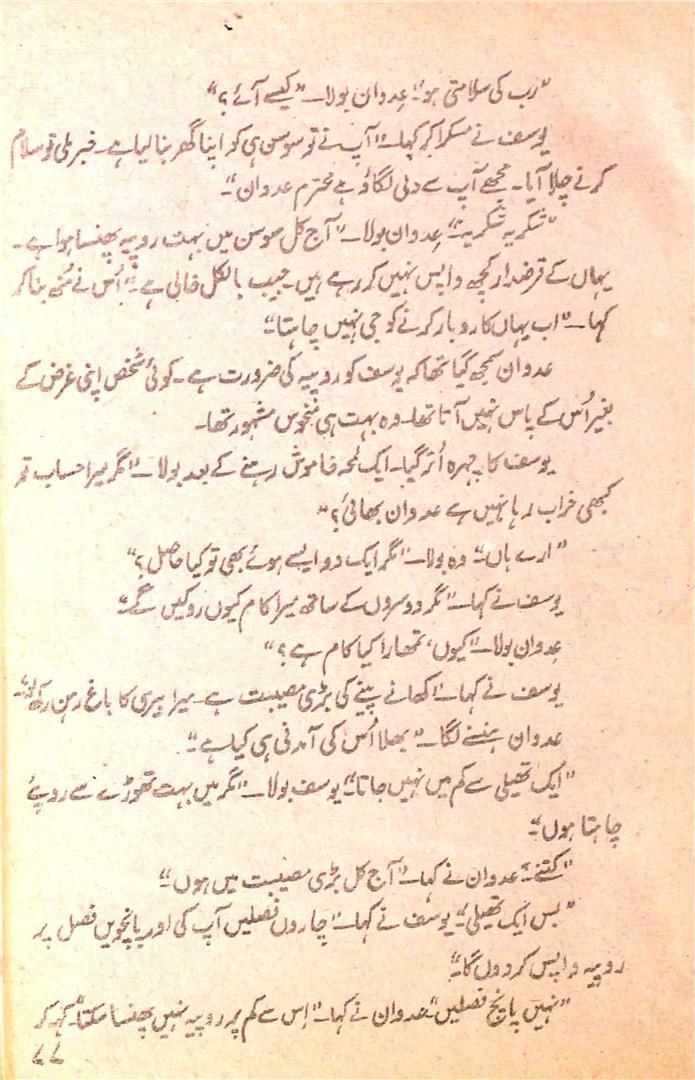 ”رب کی سلامتی ہو“۔ عِدوان بولا۔۔”کیسے آئے؟“
یوسف نے مسکرا کر کہا۔۔”آپ نے تو سوسن ہی کو اپنا گھر بنا لیا ہے۔ خبر ملی تو سلام
کرنے چلا آیا۔ مجھے آپ سے دلی لگاؤ ہے محترم عدوان“۔
”شکریہ شکریہ“۔ عِدوان بولا۔۔”آج کل سوسن میں بہت روپیہ پھنسا ہوا ہے۔
یہاں کے قرضدار کچھ واپس نہیں کر رہے ہیں۔ جیب بالکل خالی ہے۔“ اُس نے مُنھ بنا کر
کہا۔۔”اب یہاں کاروبار کرنے کو جی نہیں چاہتا“۔
عدوان سمجھ گیا تھا کہ یوسف کو روپیہ کی ضرورت ہے۔ کوئی شخص اپنی غرض کے
بغیر اُس کے پاس نہیں آتا تھا۔ وہ بہت ہی منحوس مشہور تھا۔
یوسف کا چہرہ اُتر گیا۔ ایک لمحہ خاموش رہنے کے بعد بولا۔۔”مگر میرا حساب تو
کبھی خراب رہا نہیں ہے عدوان بھائی؟“
”ارے ہاں“۔ وہ بولا۔۔”مگر ایک دو ایسے ہوئے بھی تو کیا حاصل؟“
یوسف نے کہا۔۔”مگر دوسروں کے ساتھ میرا کام کیوں روکیں گے“۔
عِدوان بولا۔۔”کیوں، تمھارا کیا کام ہے؟“
یوسف نے کہا۔۔”کھانے پینے کی بڑی مصیبت ہے۔ میرا بیری کا باغ رہن رکھ لو“۔
عدوان ہنسنے لگا۔۔”بھلا اُس کی آمدنی ہی کیا ہے“۔
”ایک تھیلی سے کم میں نہیں جاتا“۔ یوسف بولا۔۔”مگر میں بہت تھوڑے سے روپئے
چاہتا ہوں“۔
”کتنے“۔ عدوان نے کہا۔۔”آج کل بڑی مصیبت میں ہوں“۔
”بس ایک تھیلی“۔ یوسف نے کہا۔۔”چاروں فصلیں آپ کی اور پانچویں فصل پر
روپیہ واپس کر دوں گا“۔
”نہیں پانچ فصلیں“۔ عدوان نے کہا۔۔”اِس سے کم پر روپیہ نہیں پھنسا سکتا“۔ کہہ کر
۷۷